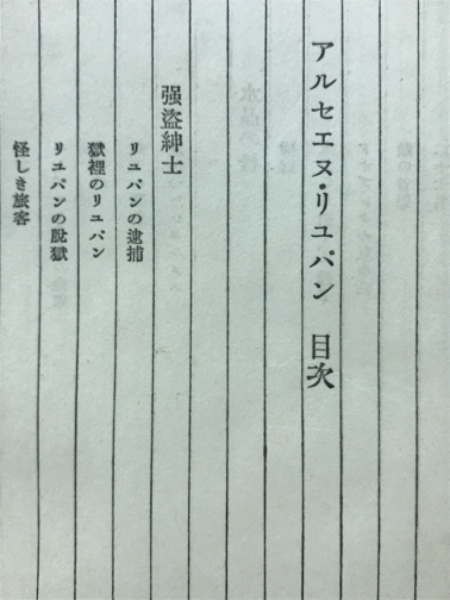 アルセエヌ・リュパン 目次
强盗紳士
リュパンの逮捕
獄裡のリュパン
リュパンの脫獄
怪しき旅客